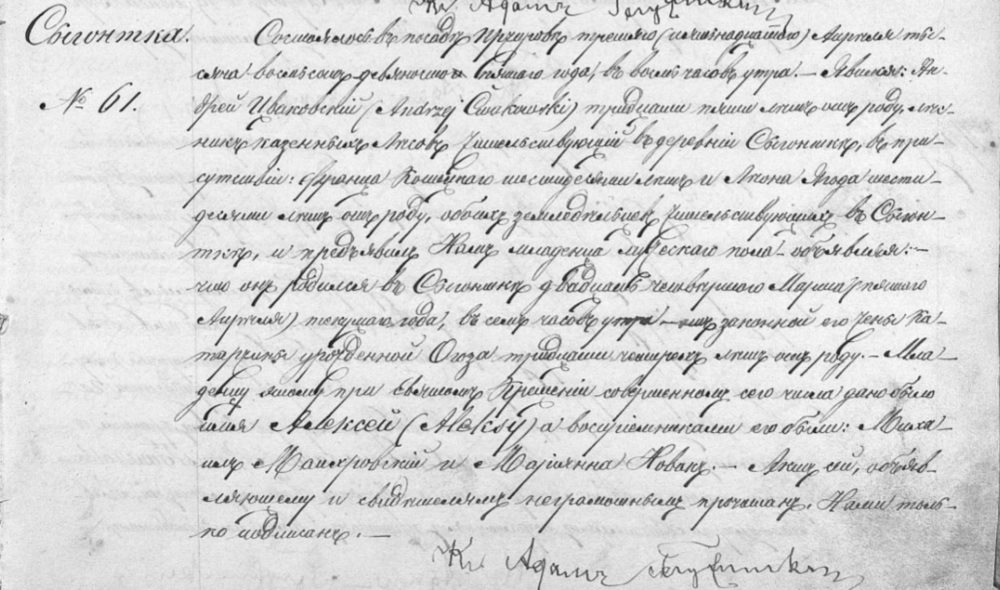 Кс. Адамъ
Сыгонтка.
№ 61.
Состоялось въ посадѣ Пржировъ третьяго (пятнадцатаго) Апрѣля ты-
сяча восемьсотъ девяносто пятаго года, въ восемь часовъ утра. — Явился: Ан-
дрей Цваковскій (Andrzej Ćwakowski) тридцати пяти лѣтъ отъ роду, лѣс-
никъ казенныхъ лѣсовъ жительствующій въ деревнѣ Сыгонткѣ, въ при-
сутствіи: Франца шестидесяти лѣтъ и Леона Ягода шести-
десяти лѣтъ отъ роду, обоихъ земледѣльцевъ жительствующихъ въ Сыгон-
ткѣ, и предъявилъ Намъ младенца мужескаго пола объявляя: —
что онъ родился въ Сыгонткѣ двадцать четвертаго Марта (пятаго
Апрѣля) текущаго года, въ семь часовъ утра — отъ законной его жены Ка-
таржины урожденной Огоза тридцати четырехъ лѣтъ отъ роду. — Мла-
денцу этому при святомъ Крещеніи совершенномъ сего числа дано было
имя Алексей (Aleksy) а воспріемниками его были: Миха-
илъ и Маріянна Новакъ. — Актъ сей, объяв-
ляющему и свидѣтелямъ неграмотнымъ прочитанъ, Нами толь-
ко подписанъ. —
Кс. Адамъ